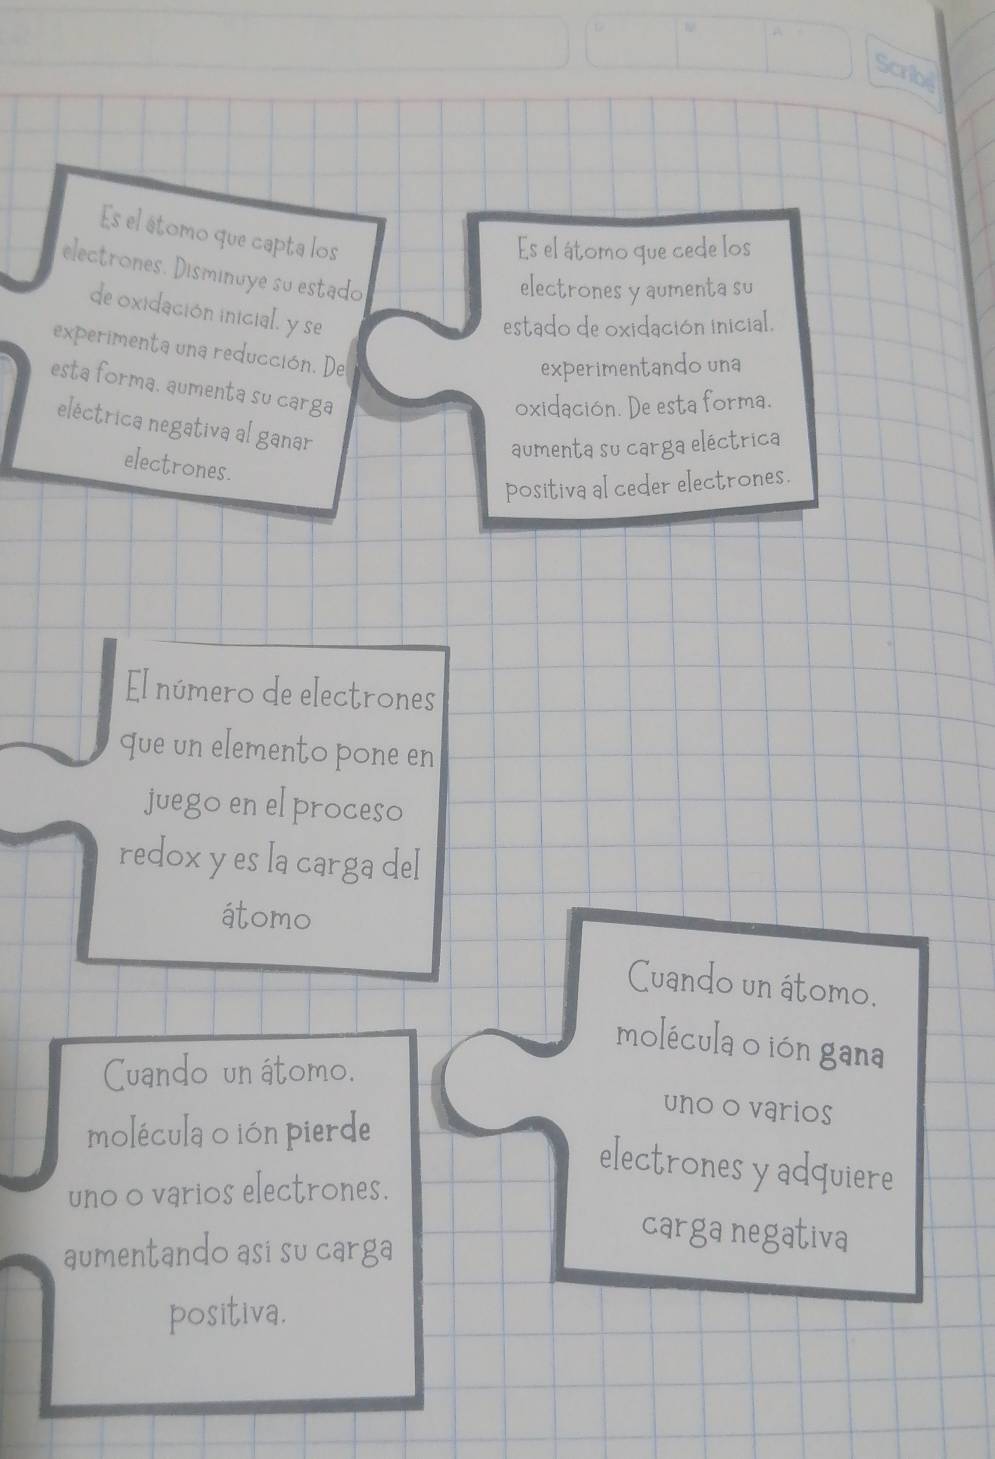 Scribe
Es el átomo que capta los
electrones. Disminuye su estado
de oxidación inicial. y se
experimenta una reducción. De
esta forma. aumenta su carga
eléctrica negativa al ganar
electrones.
Es el átomo que cede los
electrones y aumenta su
estado de oxidación inicial.
experimentando una
oxidación. De esta forma.
aumenta su carga eléctrica
positiva al ceder electrones.
El número de electrones
que un elemento pone en
juego en el proceso
redox y es la carga del
átomo
Cuando un átomo.
molécula o ión gana
uno o varios
electrones y adquiere
carga negativa
Cuando un átomo.
molécula o ión pierde
uno o varios electrones.
aumentando asi su carga
positiva.